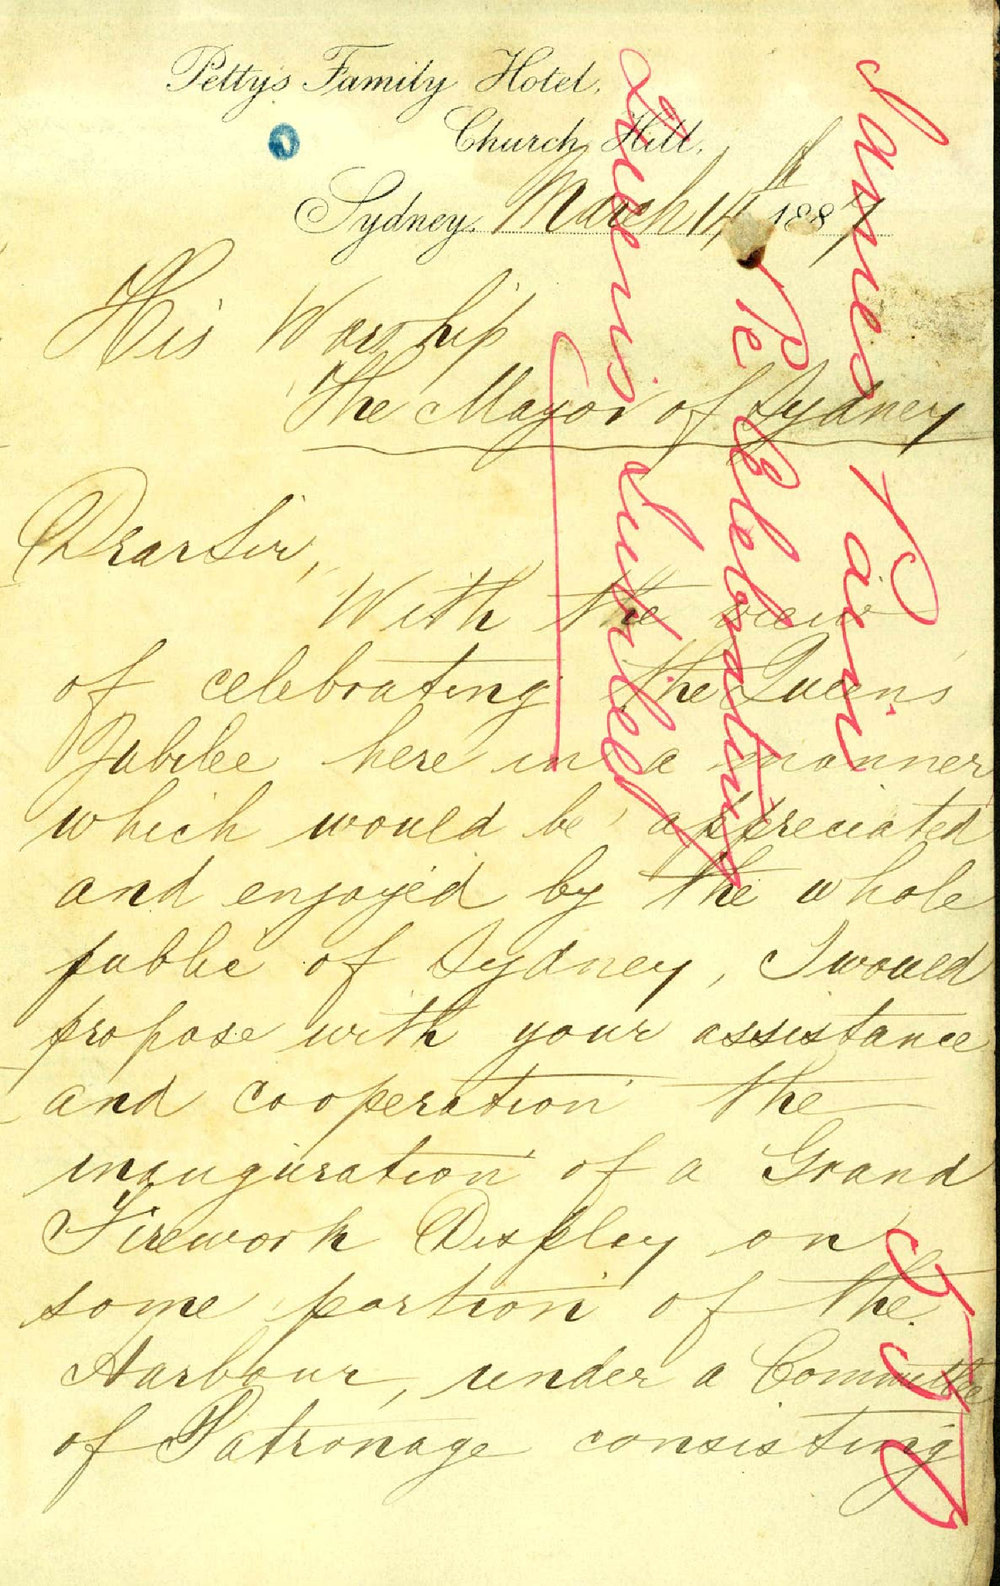 Petty's Family Hotel.
Church Hill.
Sydney, March 14th 1887
His Worship
The Mayor of Sydney
Dear Sir,
With the view
of celebrating the Queen's
Jubilee here in a manner
which would be appreciated
and enjoyed by the whole
public of Sydney, I would
propose with your assistance
and cooperation the
inauguration of a Grand
Firework Display on
some portion of the
Harbour, under a Committee
of Patronage consisting
James Pain
Re Celebrating
Queens Jubilee